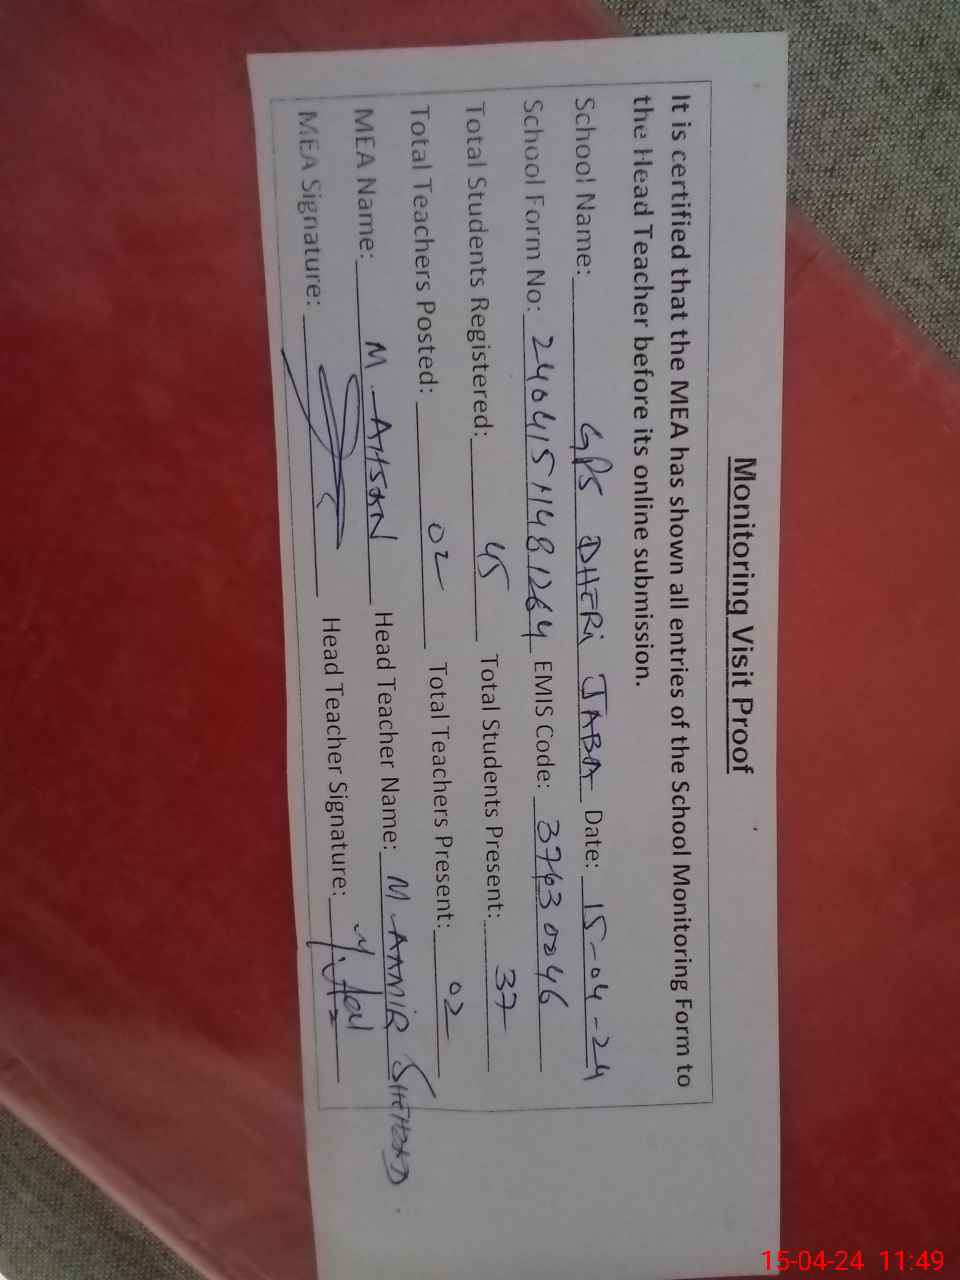 Monitoring Visit Proof
It is certified that the MEA has shown all entries of the School Monitoring Form to
the Head Teacher before its online submission.
School Name: GPS DHERI JABA Date: 15-04-24
School Form No: 24041511481264 EMIS Code: 37630046
Total Students Registered: 45 Total Students Present: 37
Total Teachers Posted: 02 Total Teachers Present: 02
MEA Name: M. AHSAN Head Teacher Name: M AAMIR SHEHZAD
MEA Signature: Head Teacher Signature:
15-04-24 11:49